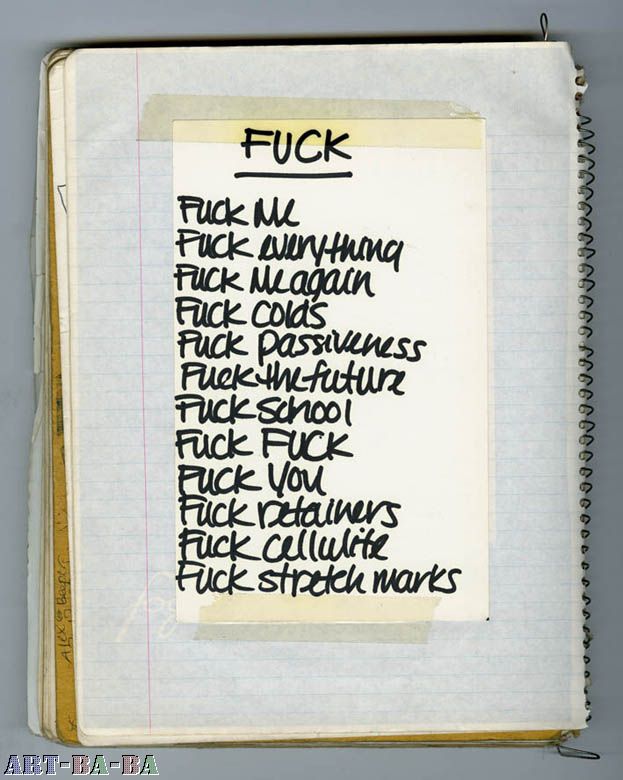 FUCK
Fuck Me
Fuck everything
Fuck Me again
Fuck colds
Fuck passiveness
Fuck the future
Fuck school
Fuck FUCK
Fuck You
Fuck retainers
Fuck cellulite
Fuck stretch marks
ART-BA-BA